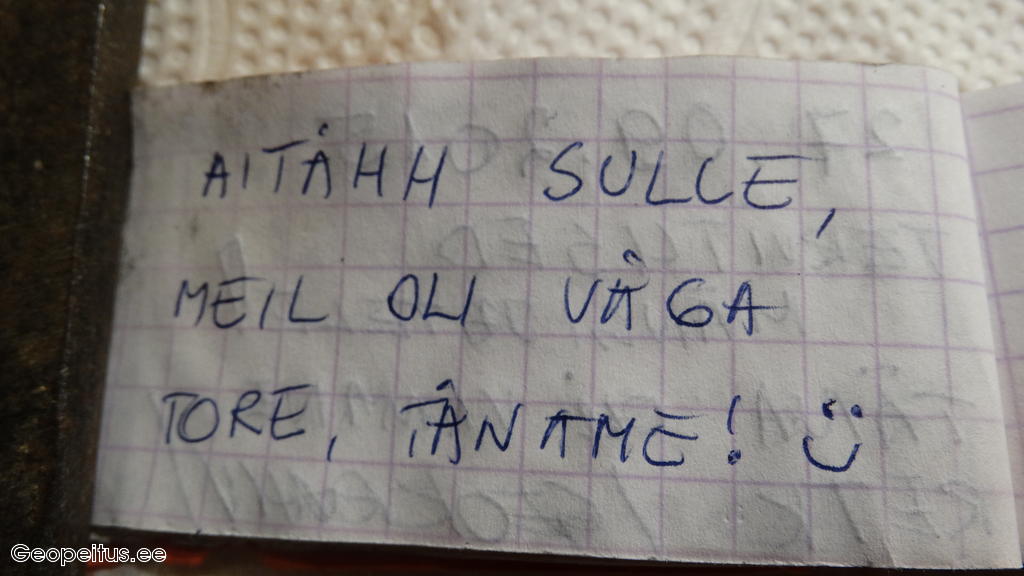 AITÄHH SULLE,
MEIL OLI VÄGA
TORE, TÄNAME! Ü
Geopeitus.ee